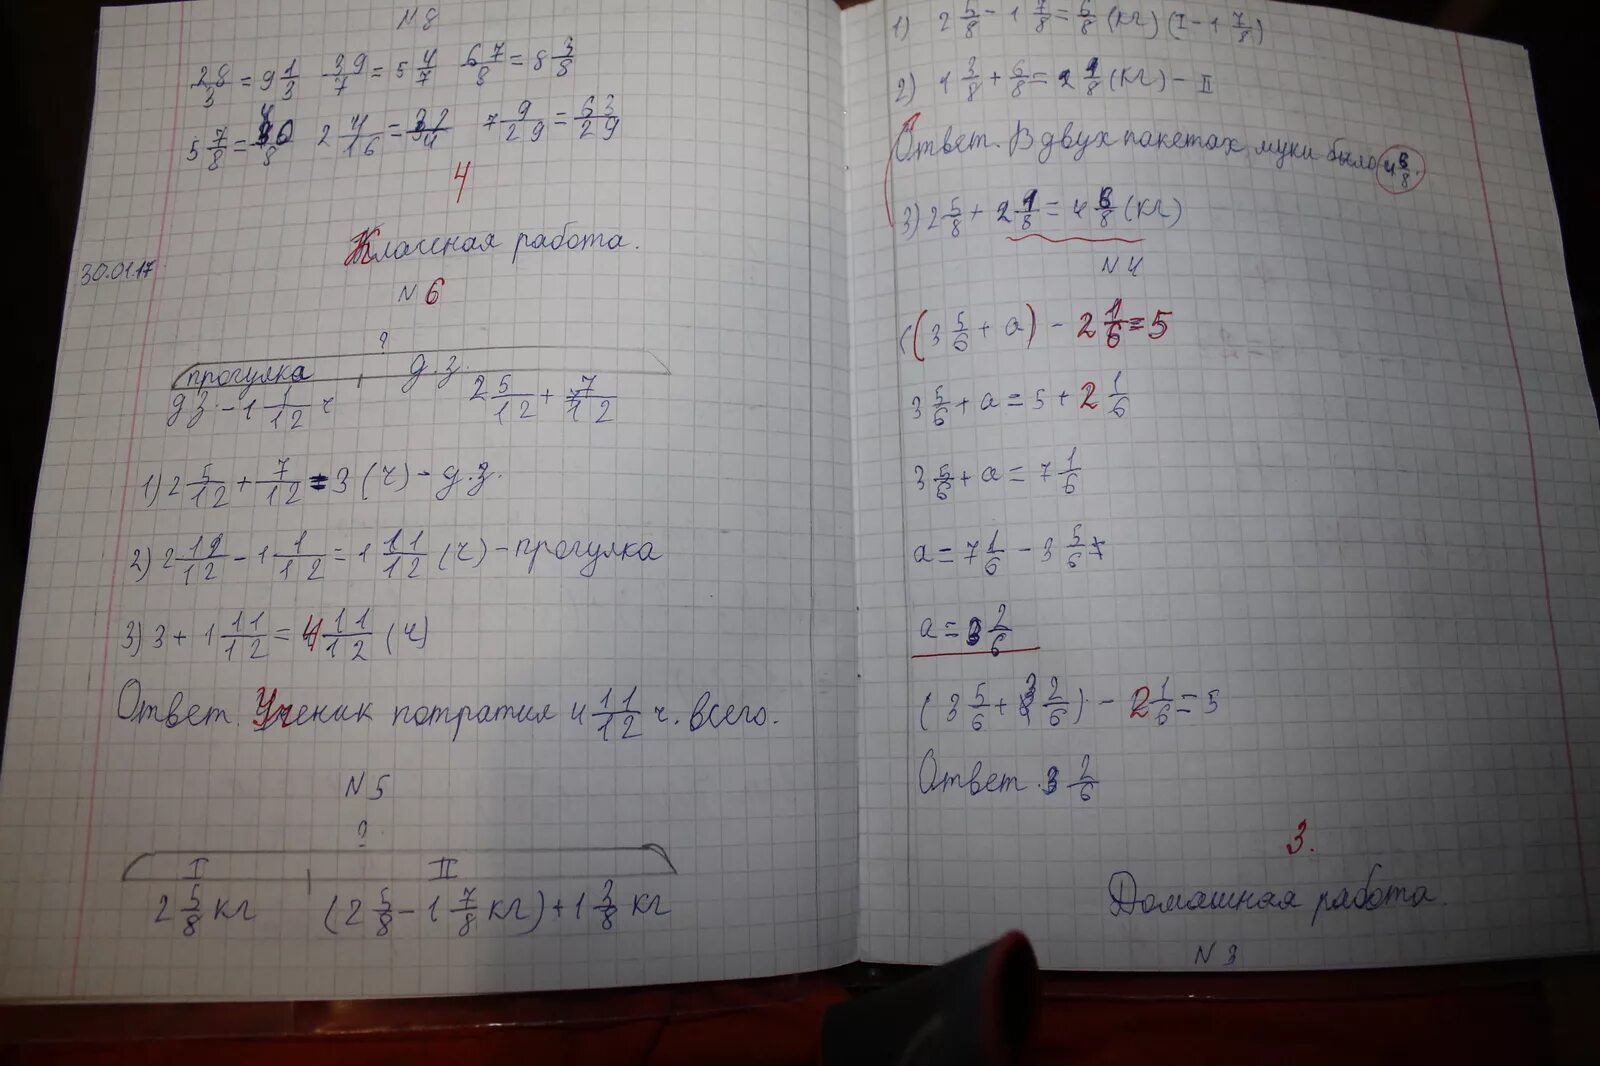 N 8
28/3 = 9 1/3 39/7 = 5 4/7 67/8 = 8 3/8
5 7/8 = /8 2 4/16 = 7 9/29 = 63/29
4
30.01.17
Классная работа.
N 6
?
прогулка д.з.
д.з. - 1 1/12 ч 2 5/12 + 7/12
1) 2 5/12 + 7/12 = 3 (ч) - д.з.
2) 2 12/12 - 1 1/12 = 1 11/12 (ч) - прогулка
3) 3 + 1 11/12 = 4 11/12 (ч)
Ответ. Ученик потратил 4 11/12 ч. всего.
N 5
?
I II
2 5/8 кг (2 5/8 - 1 7/8 кг) + 1 3/8 кг
1) 2 5/8 - 1 7/8 = 6/8 (кг) (I - 1 7/8)
2) 1 3/8 + 6/8 = 2 1/8 (кг) - II
Ответ. В двух пакетах муки было 4 6/8.
3) 2 5/8 + 2 1/8 = 4 6/8 (кг)
N 4
(3 5/6 + a) - 2 1/6 = 5
3 5/6 + a = 5 + 2 1/6
3 5/6 + a = 7 1/6
a = 7 1/6 - 3 5/6
a = 3 2/6
(3 5/6 + 3 2/6) - 2 1/6 = 5
Ответ. 3 2/6
3.
Домашная работа.
N 3